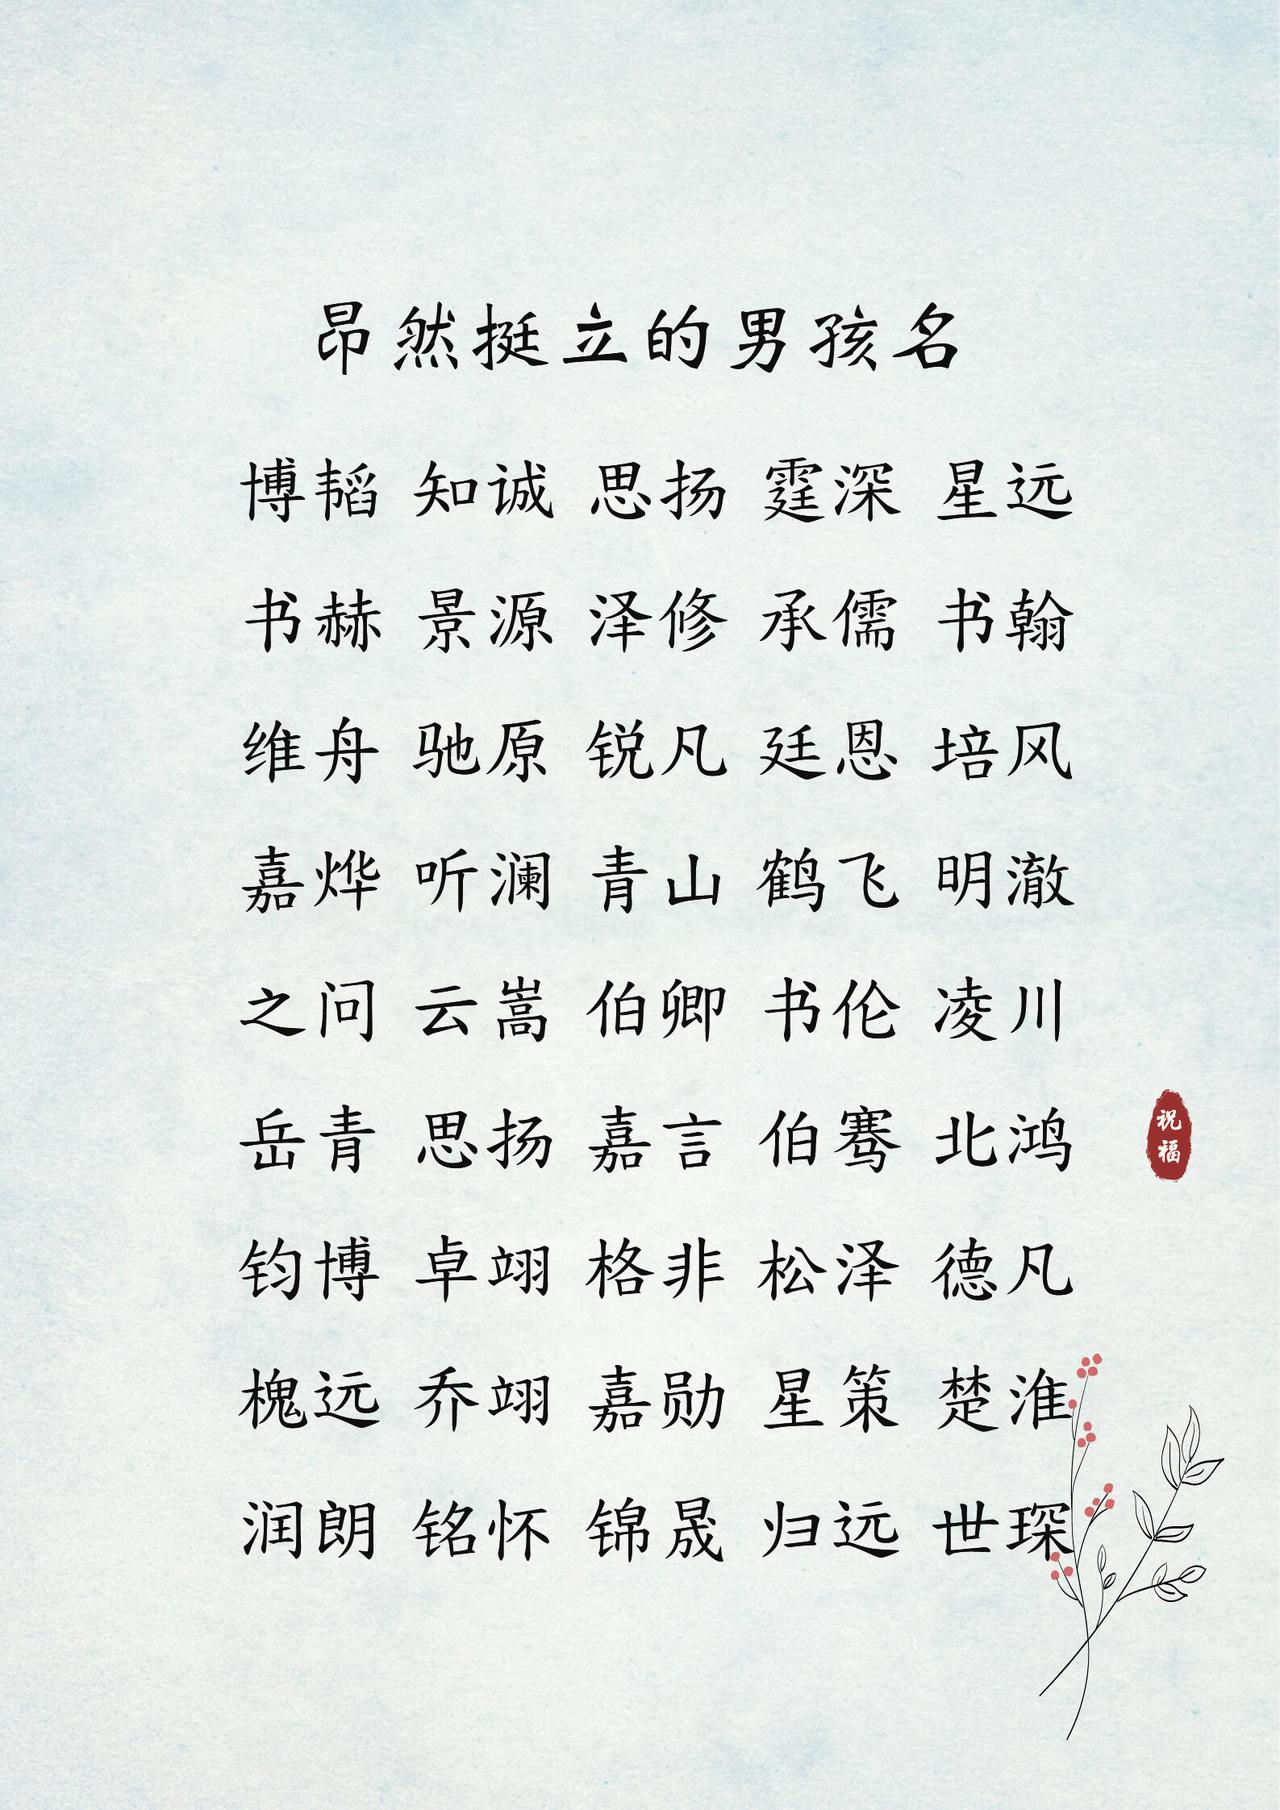 昂然挺立的男孩名
博韬 知诚 思扬 霆深 星远
书赫 景源 泽修 承儒 书翰
维舟 驰原 锐凡 廷恩 培风
嘉烨 听澜 青山 鹤飞 明澈
之问 云嵩 伯卿 书伦 凌川
岳青 思扬 嘉言 伯骞 北鸿
祝福
钧博 卓翊 格非 松泽 德凡
槐远 乔翊 嘉勋 星策 楚淮
润朗 铭怀 锦晟 归远 世琛